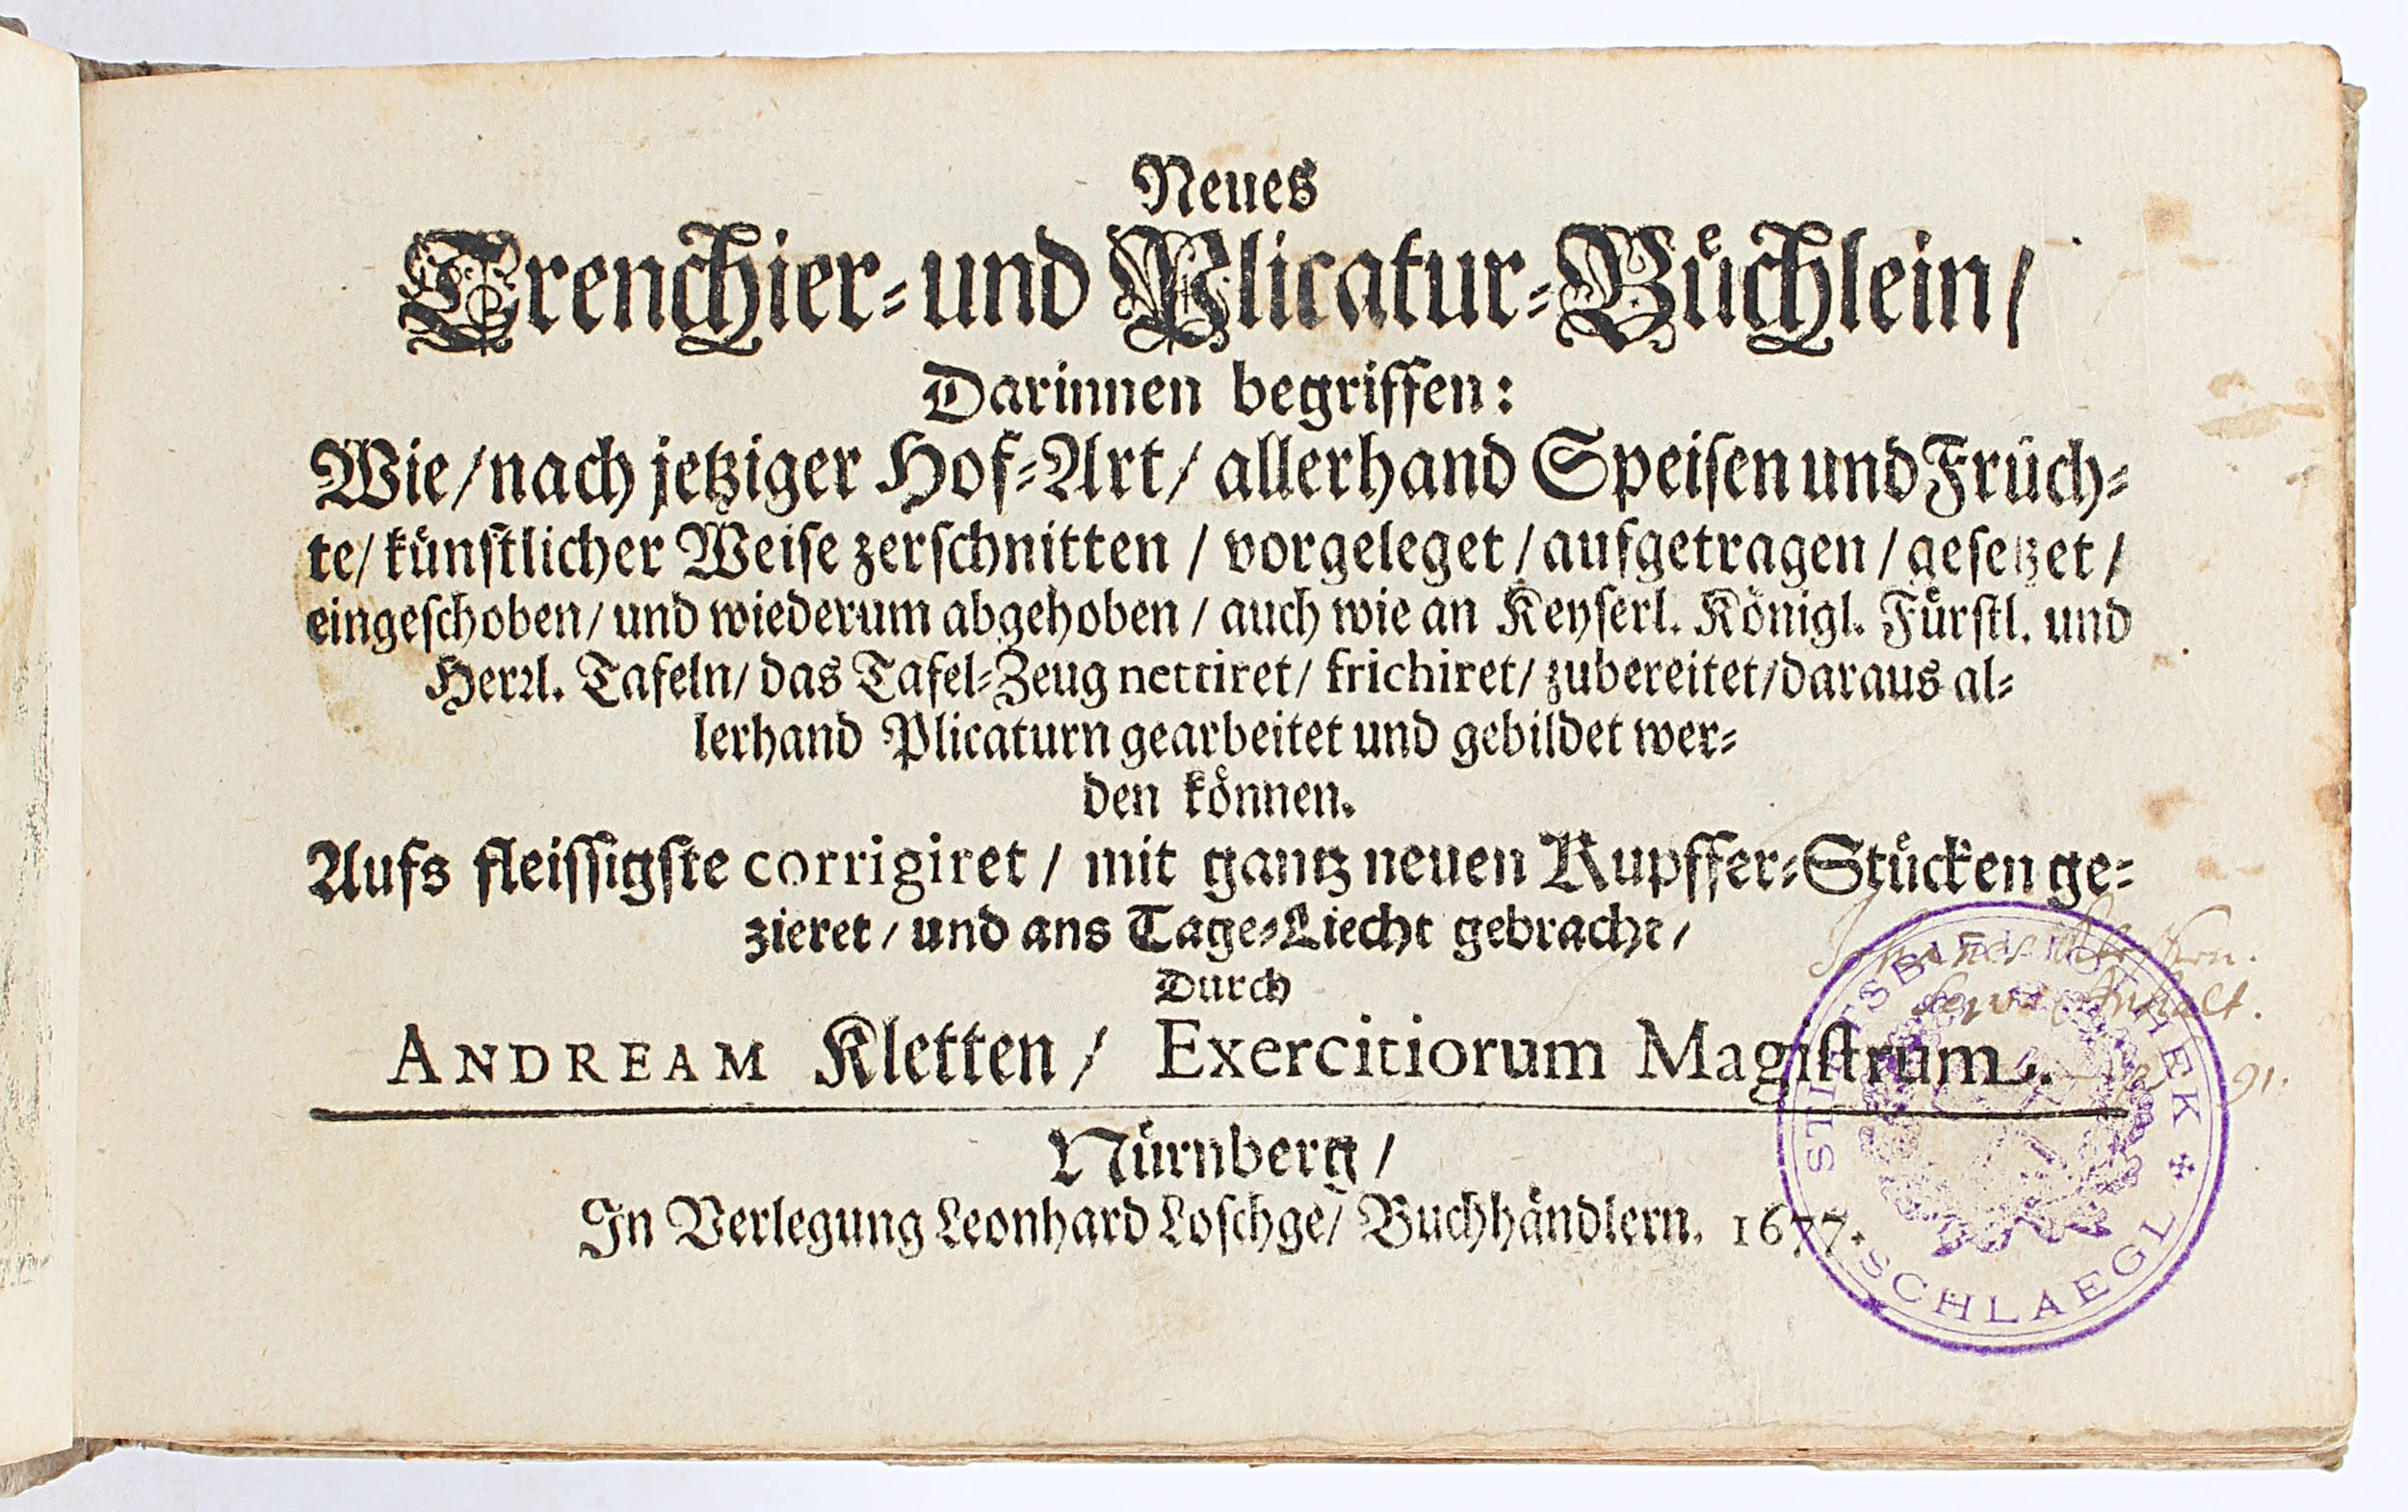 Neues
Trenchier- und Plicatur-Büchlein/
Darinnen begriffen:
Wie/ nach jetziger Hof-Art/ allerhand Speisen und Früch-
te/ künstlicher Weise zerschnitten / vorgeleget / aufgetragen / gesetzet /
eingeschoben / und wiederum abgehoben / auch wie an Keyserl. Königl. Fürstl. und
Herrl. Tafeln/ das Tafel-Zeug nettiret/ frichiret/ zubereitet/ daraus al-
lerhand Plicaturn gearbeitet und gebildet wer-
den können.
Aufs fleissigste corrigiret / mit gantz neuen Kupffer-Stücken ge-
zieret / und ans Tage-Liecht gebracht /
Durch
ANDREAM Kletten / Exercitiorum Magistrum.
Nürnberg /
In Verlegung Leonhard Loschge/ Buchhändlern. 1677.
STIFTSBIBLIOTHEK
SCHLAEGL
91.